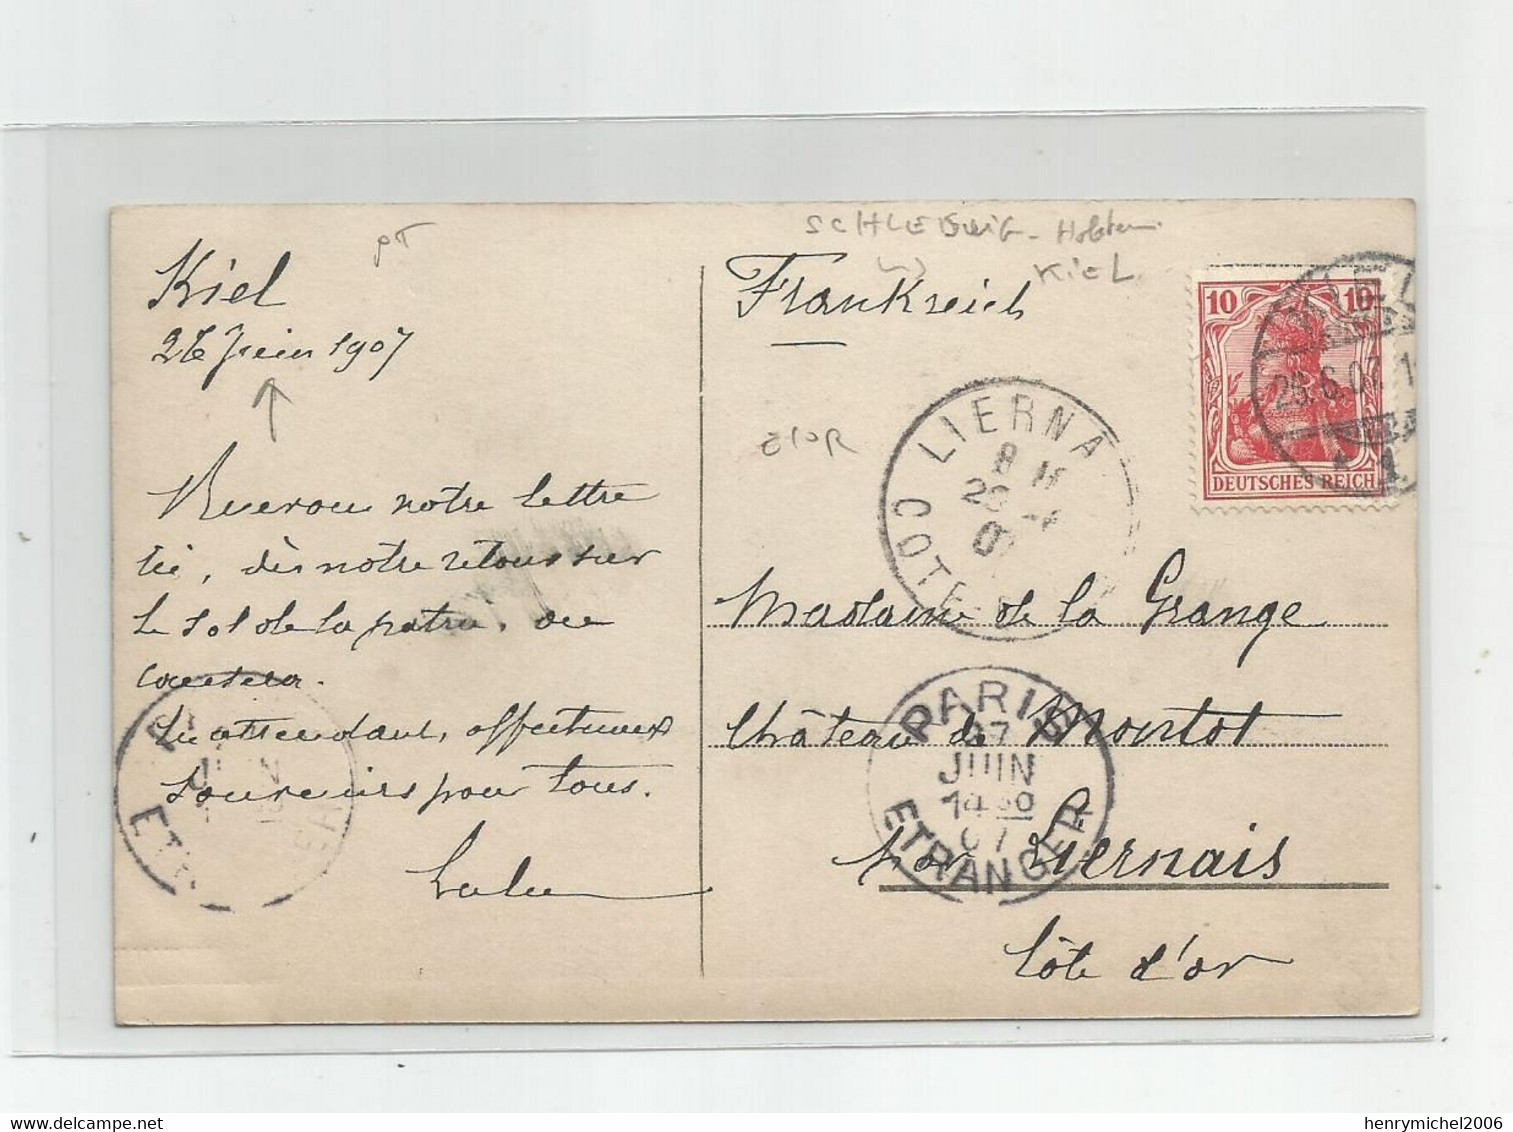 SCHLESWIG - Holstein
KIEL
Kiel
26 Juin 1907
notre lettre
ici, dès notre retour sur
le sol de la patrie.
En attendant, affectueux
souvenirs pour tous.
Lulu
Frankreich
10 10
DEUTSCHES REICH
KIEL
26.6.07. 1
* 1
LIERNA
8 M
COTE-
Madame de la Grange
Château de Montot
par Liernais
Côte d'or
PARIS
27
JUIN
14 30
07
ETRANGER
ET
henrymichel2006